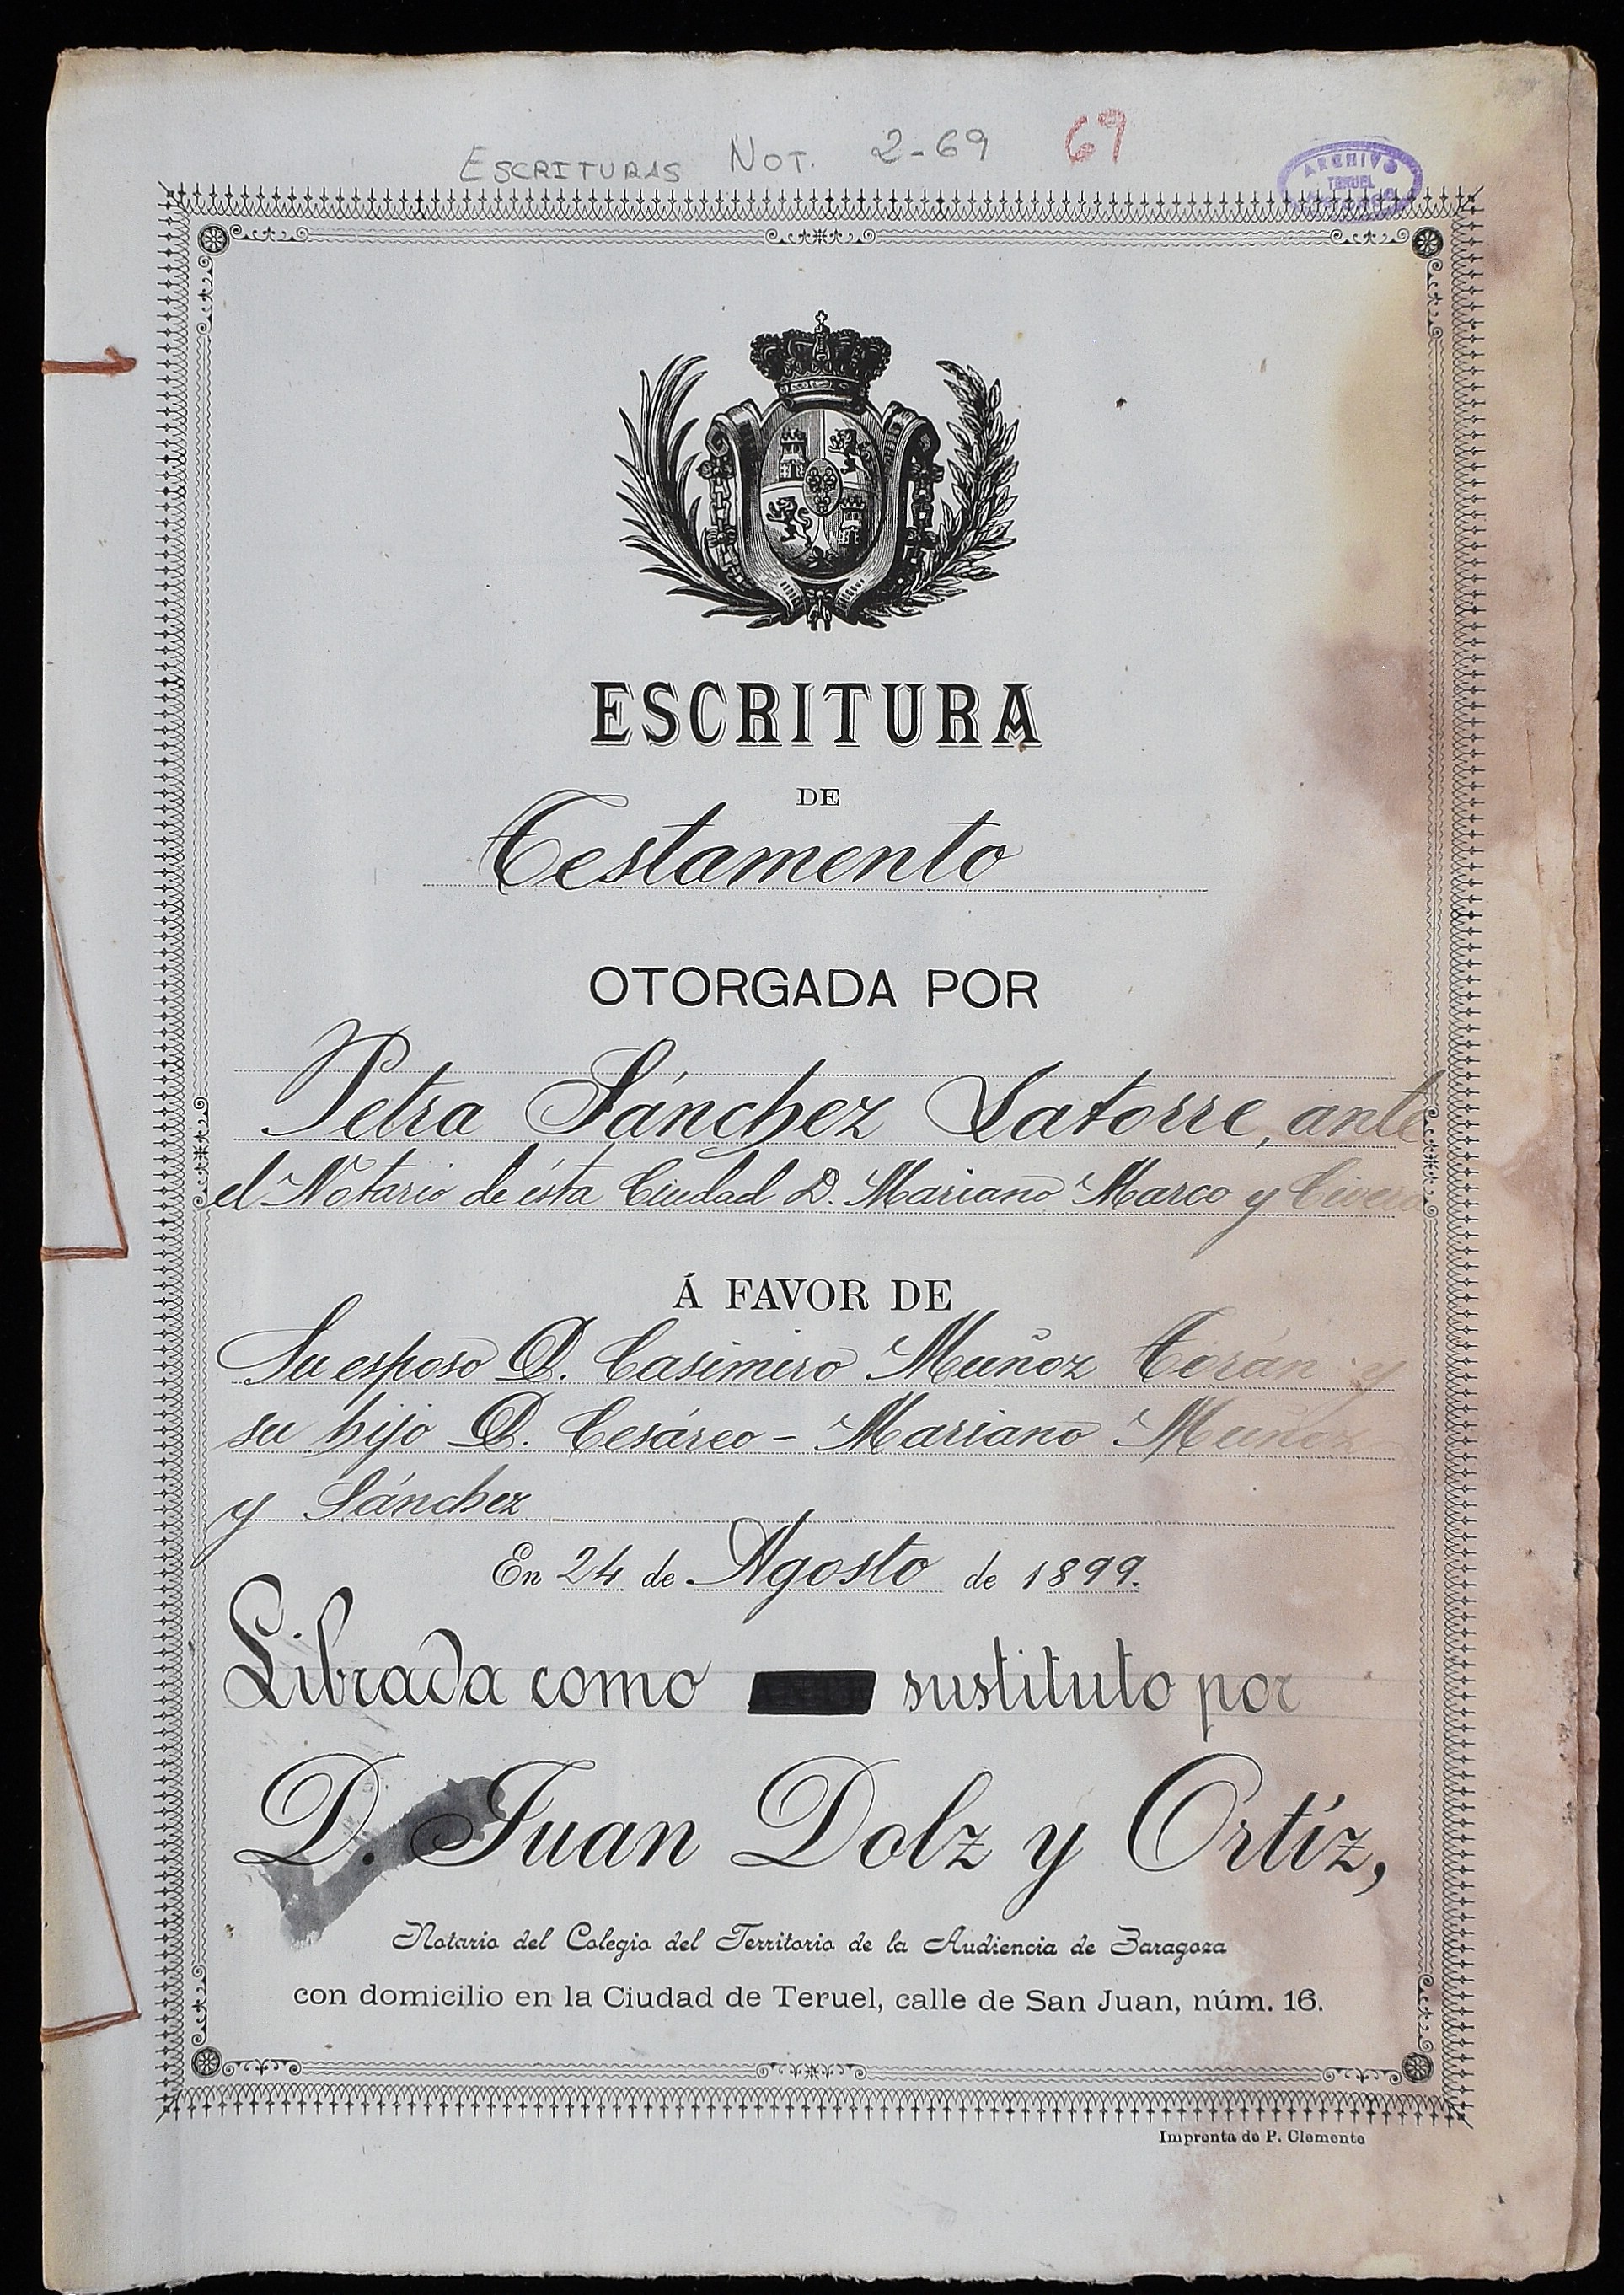 ESCRITURAS NOT. 2-69 67
ARCHIVO
TERUEL
ESCRITURA
DE
Testamento
OTORGADA POR
Petra Sánchez Latorre, ante
el Notario de ésta Ciudad D. Mariano Marco y Civera
Á FAVOR DE
Su esposo D. Casimiro Muñoz Torán y
su hijo D. Cesáreo - Mariano Muñoz
y Sánchez
En 24 de Agosto de 1899.
Librada como sustituto por
D. Juan Dolz y Ortíz,
Notario del Colegio del Territorio de la Audiencia de Zaragoza
con domicilio en la Ciudad de Teruel, calle de San Juan, núm. 16.
Imprenta de P. Clemente